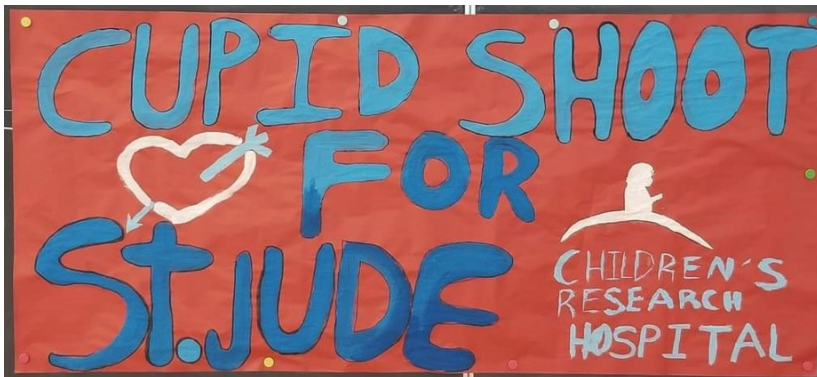 CUPID SHOOT
FOR
St.JUDE
CHILDREN'S
RESEARCH
HOSPITAL